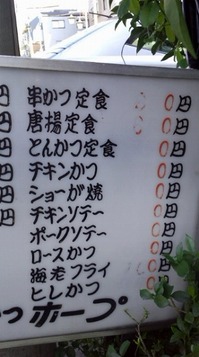 串かつ定食 0円
唐揚定食 0円
とんかつ定食 0円
チキンかつ 0円
ショーが焼 0円
チキンソテー 0円
ポークソテー 0円
ロースかつ 0円
海老フライ 0円
ヒレかつ 0円
つ ホープ